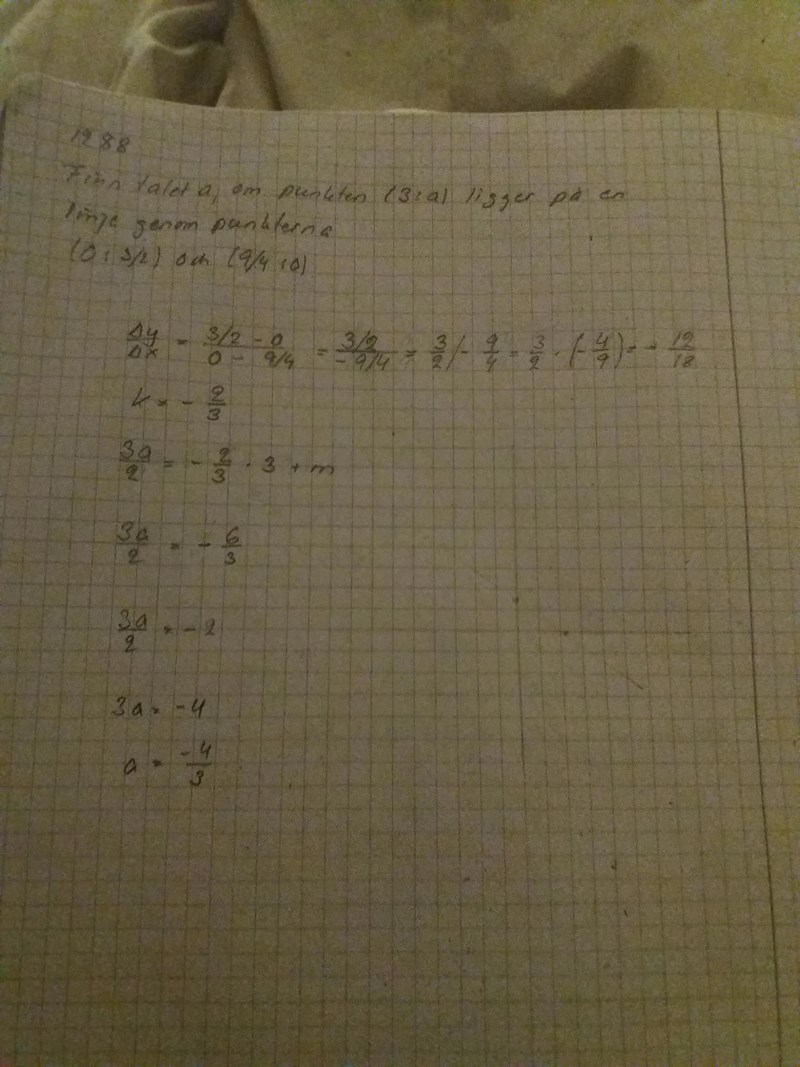 1288
Finn talet a, om punkten (3; a) ligger på en
linje genom punkterna
(0; 3/2) och (9/4; 0)
Δy/Δx = (3/2 - 0)/(0 - 9/4) = (3/2)/(- 9/4) = 3/2 / - 9/4 = 3/2 · (- 4/9) = - 12/18
k = - 2/3
3a/2 = - 2/3 · 3 + m
3a/2 = - 6/3
3a/2 = - 2
3a = -4
a = -4/3